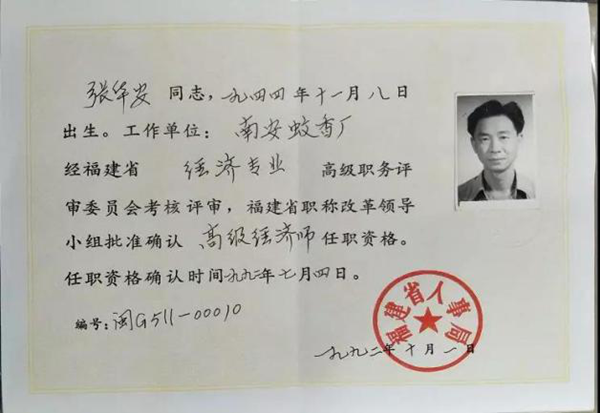 张华安 同志，一九四四年十一月八日
出生。工作单位： 南安蚊香厂
经福建省 经济专业 高级职务评
审委员会考核评审，福建省职称改革领导
小组批准确认 高级经济师 任职资格。
任职资格确认时间一九九二年七月四日。
编号：闽G511-00010
福建省人事局
一九九二年十月一日